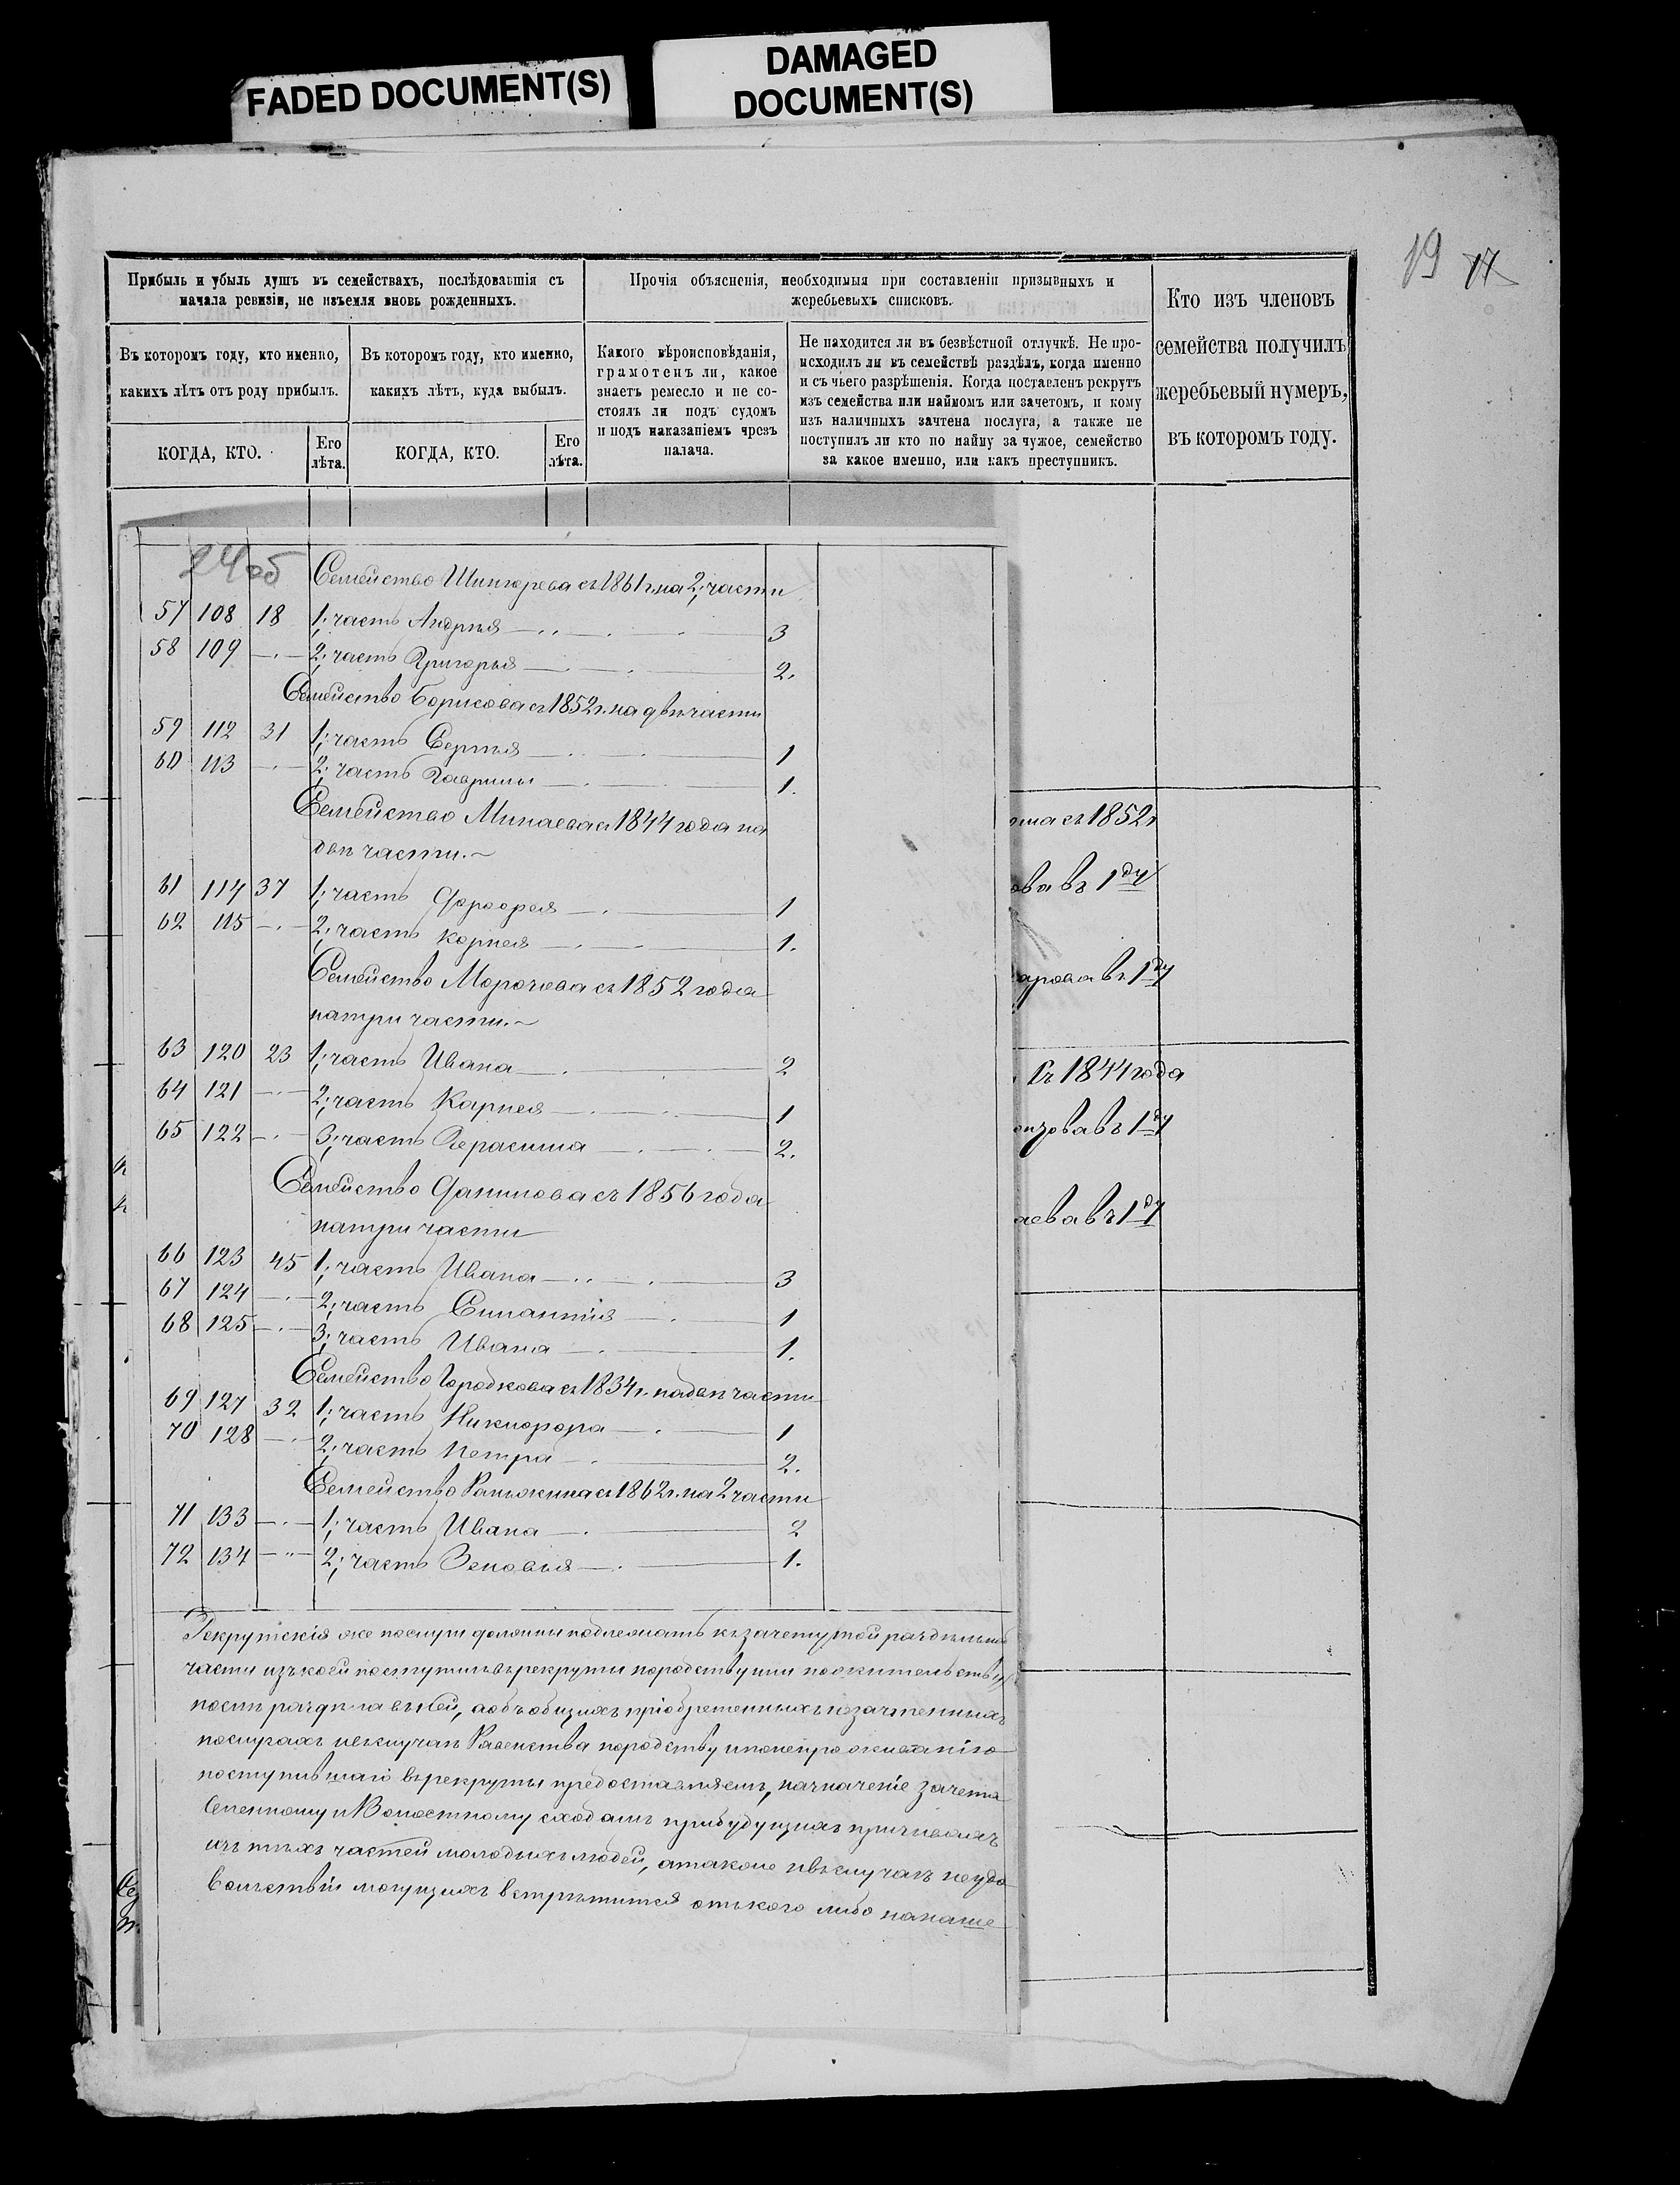 FADED DOCUMENT(S)
DAMAGED
DOCUMENT(S)
19 17
Прибыль и убыль душъ въ семействахъ, послѣдовавшія съ
начала ревизіи, не изъемля вновь рожденныхъ.
Прочія объясненія, необходимыя при составленіи призывныхъ и
жеребьевыхъ списковъ.
Кто изъ членовъ
семейства получилъ
жеребьевый нумеръ,
въ которомъ году.
Въ которомъ году, кто именно,
какихъ лѣтъ отъ роду прибылъ.
Въ которомъ году, кто именно,
какихъ лѣтъ, куда выбылъ.
Какого вѣроисповѣданія,
грамотенъ ли, какое
знаетъ ремесло и не со-
стоялъ ли подъ судомъ
и подъ наказаніемъ чрезъ
палача.
Не находится ли въ безвѣстной отлучкѣ. Не про-
исходилъ ли въ семействѣ раздѣлъ, когда именно
и съ чьего разрѣшенія. Когда поставленъ рекрутъ
изъ семейства или наймомъ или зачетомъ, и кому
изъ наличныхъ зачтена послуга, а также не
поступилъ ли кто по найму за чужое, семейство
за какое именно, или какъ преступникъ.
КОГДА, КТО.
Его
лѣта.
КОГДА, КТО.
Его
лѣта.
24об
Семейство съ 1861 г. на 2; части
57 108 18 1; часть Андрея 3
58 109 2; часть Григорья 2.
Семейство Борисова съ 1852 г. на двѣ части
59 112 31 1; часть Сергѣя 1
60 113 2; часть Гаврилы 1.
Семейство Минаева съ 1844 года на
двѣ части.
61 114 37 1; часть 1
62 115 2; часть Корнея 1.
Семейство съ 1852 года
на три части.
63 120 23 1; часть Ивана 2
64 121 2; часть Карнея 1
65 122 3; часть Герасима 2.
Семейство Данилова съ 1856 года
на три части
66 123 45 1; часть Ивана 3
67 124 2; часть 1
68 125 3; часть Ивана 1.
Семейство Городкова съ 1834 г. на двѣ части
69 127 32 1; часть Никифора 1
70 128 2; часть Петра 2.
Семейство съ 1862 г. на 2 части
71 133 1; часть Ивана 2
72 134 2; часть Зеновья 1.
Рекрутскія же послуги должны подлежать къ зачету той раздѣльной
части изъ коей поступилъ въ рекруты по родству или по жительству
послѣ раздѣла въ ней, а объ общихъ пріобретенныхъ
послугахъ въ случаѣ равенства по родству
поступившаго въ рекруты предоставляемъ, назначеніе зачета
Селенному и Волостному сходамъ при будущихъ призывахъ
изъ тѣхъ частей молодыхъ людей, а также и въ случаѣ неудо
вольствій могущихъ встрѣтится отъ кого либо на наше
съ 1852 г
ова въ 1ду
арова въ 1ду
Съ 1844 года
въ 1ду
аева въ 1ду